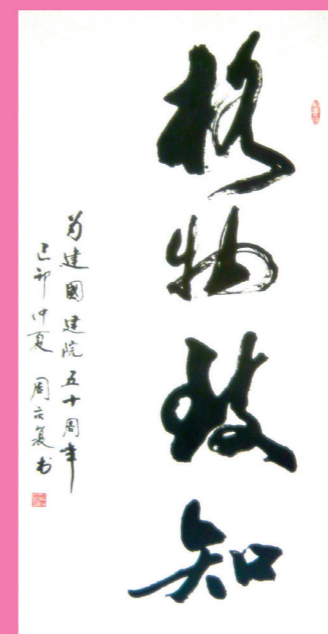 格物致知
为建國建院五十周年
己卯仲夏 周
书